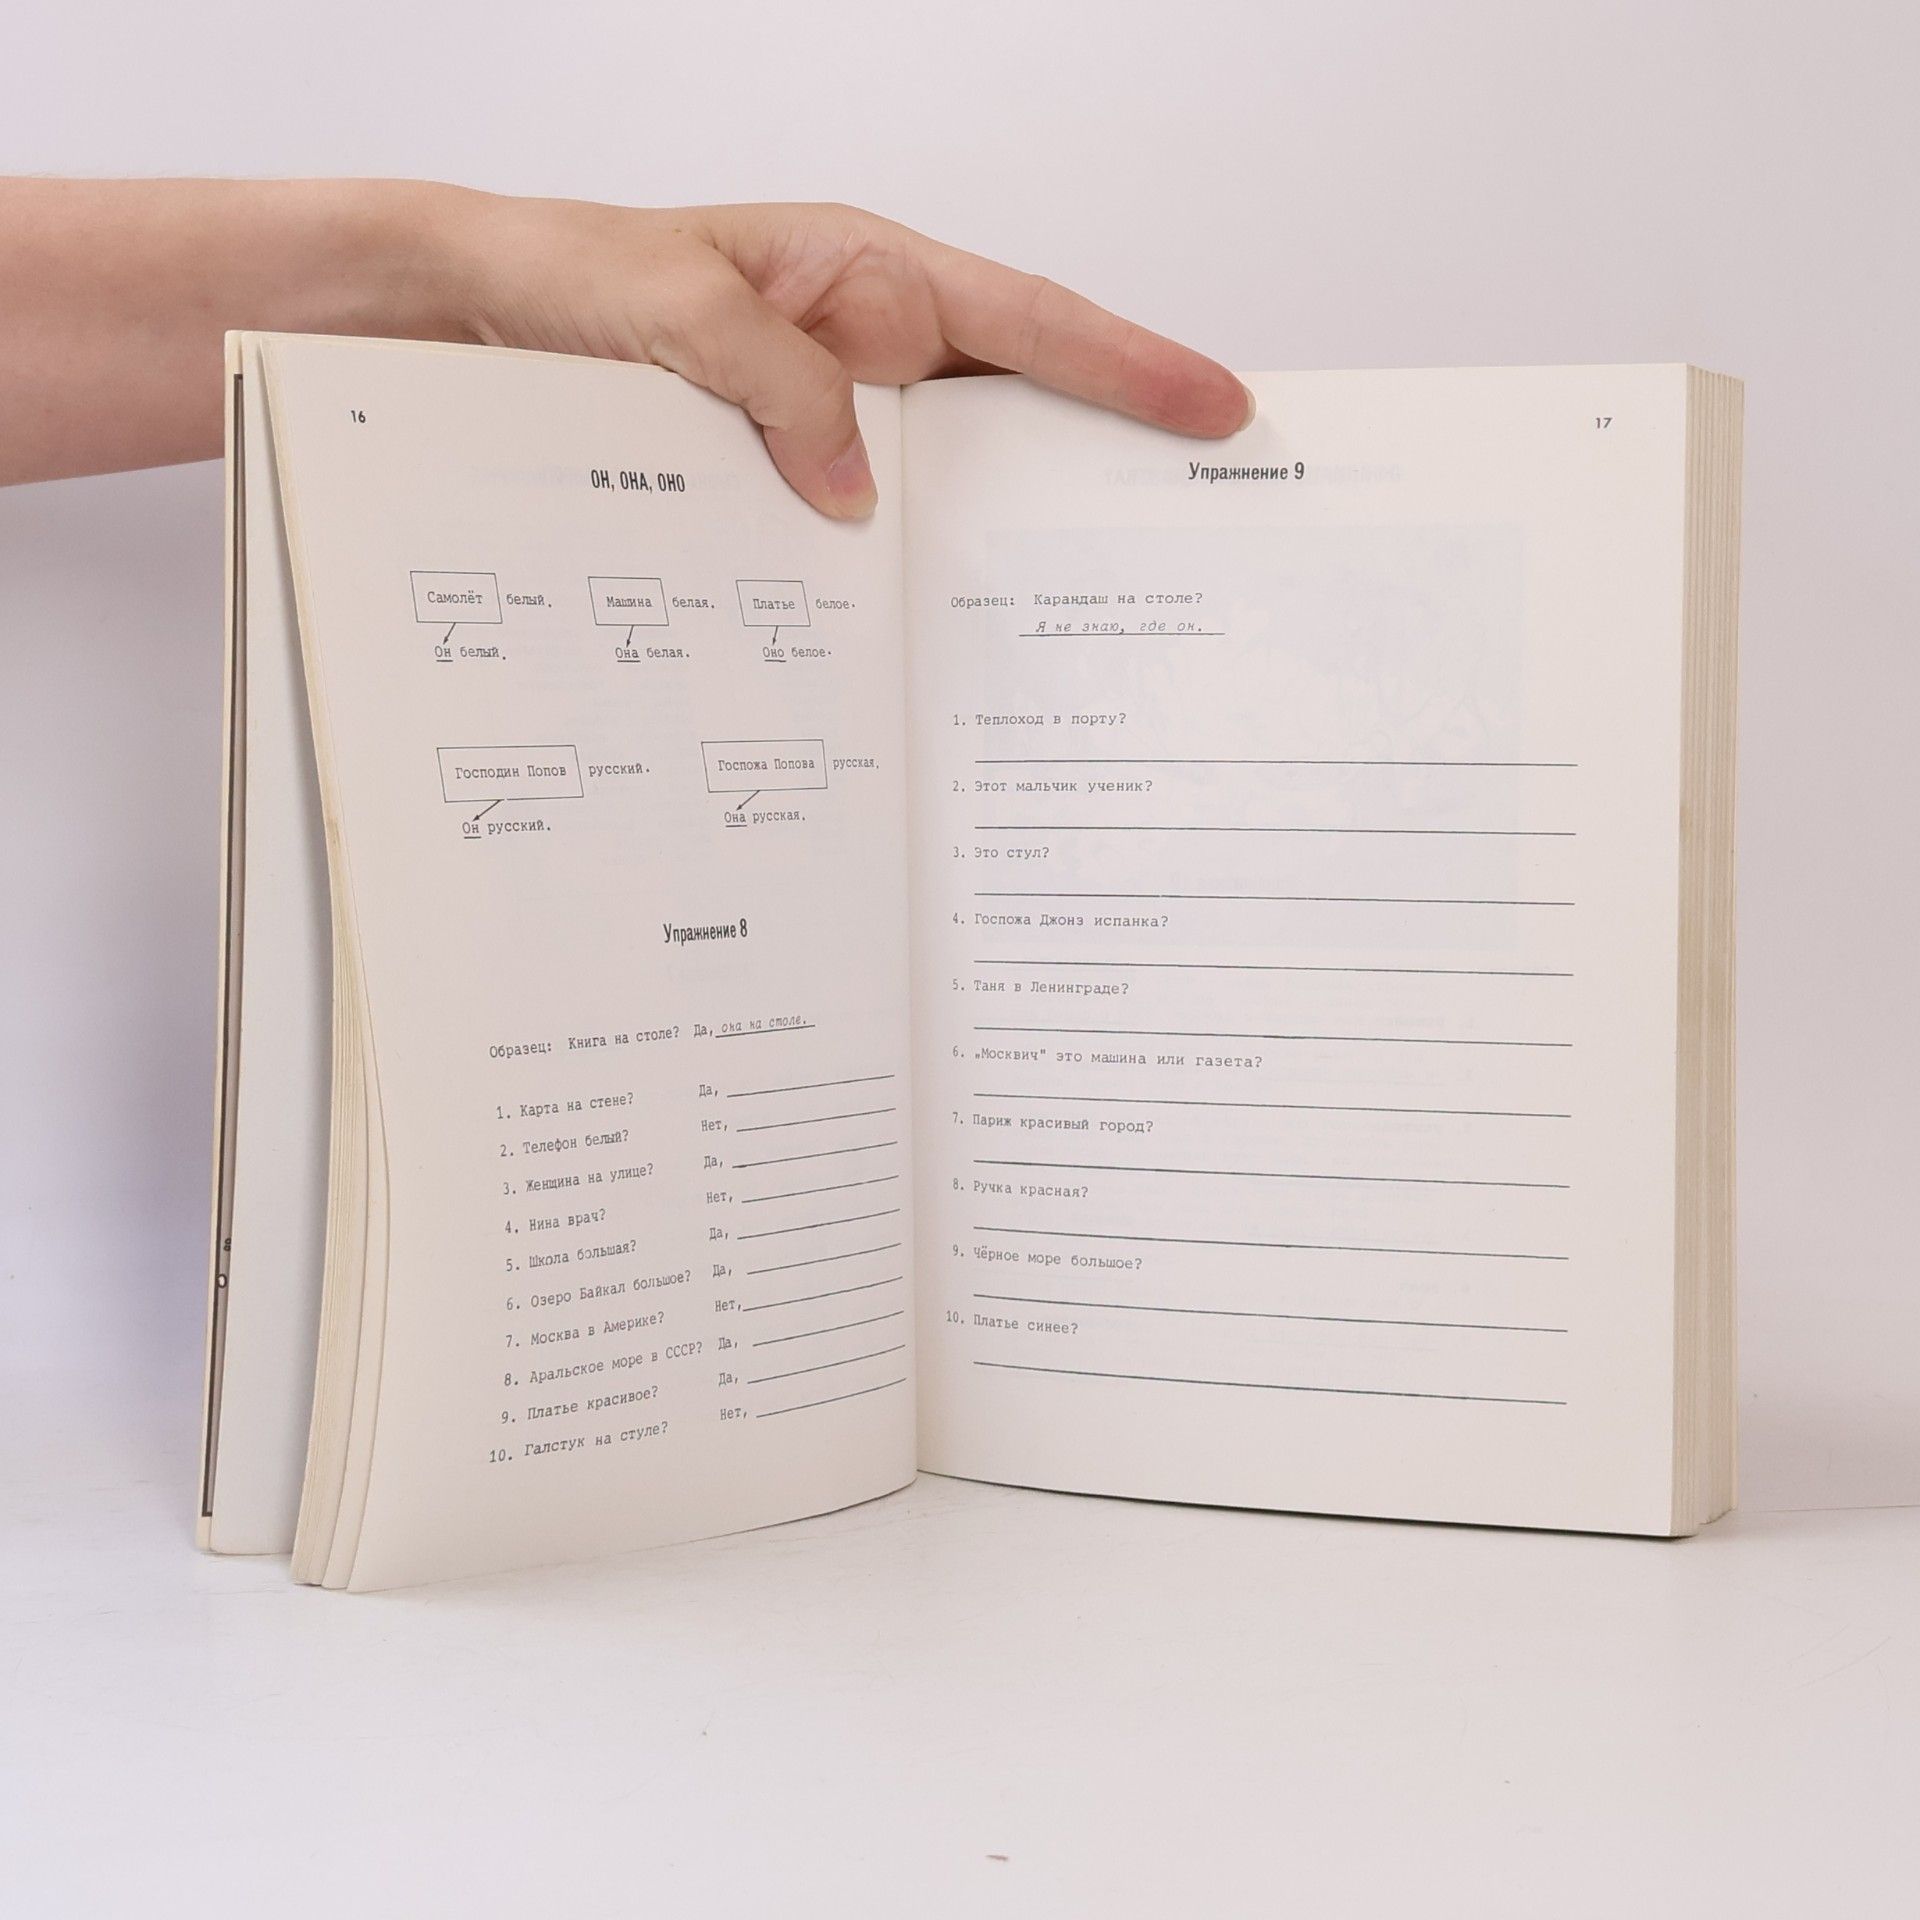 16
ОН, ОНА, ОНО
Самолёт белый. Машина белая. Платье белое.
Он белый. Она белая. Оно белое.
Господин Попов русский. Госпожа Попова русская.
Он русский. Она русская.
Упражнение 8
Образец: Книга на столе? Да, она на столе.
1. Карта на стене? Да,
2. Телефон белый? Нет,
3. Женщина на улице? Да,
4. Нина врач? Нет,
5. Школа большая? Да,
6. Озеро Байкал большое? Да,
7. Москва в Америке? Нет,
8. Аральское море в СССР? Да,
9. Платье красивое? Да,
10. Галстук на стуле? Нет,
17
Упражнение 9
Образец: Карандаш на столе?
Я не знаю, где он.
1. Теплоход в порту?
2. Этот мальчик ученик?
3. Это стул?
4. Госпожа Джонз испанка?
5. Таня в Ленинграде?
6. „Москвич" это машина или газета?
7. Париж красивый город?
8. Ручка красная?
9. Чёрное море большое?
10. Платье синее?